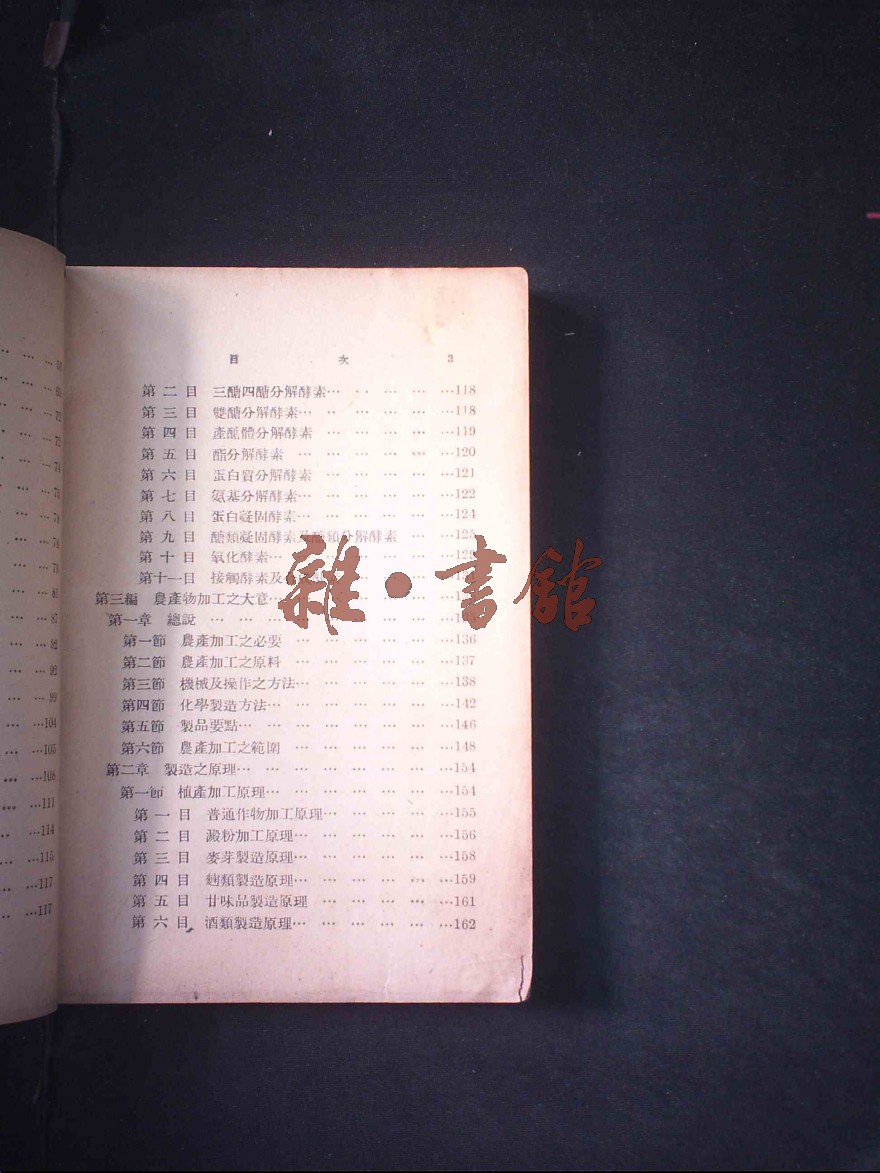 目 次 3
第二目 三醣四醣分解酵素… … … … … …118
第三目 雙醣分解酵素… … … … … …118
第四目 產醣體分解酵素 … … … … …119
第五目 酯分解酵素 … … … … … …120
第六目 蛋白質分解酵素 … … … … …121
第七目 氨基分解酵素… … … … … …122
第八目 蛋白凝固酵素… … … … … …124
第九目 醣類凝固酵素及醣類分解酵素 … …125
第十目 氧化酵素…
第十一目 接觸酵素及
第三編 農產物加工之大意…
第一章 總說 … … … … …
第一節 農產加工之必要 … … … … … …136
第二節 農產加工之原料 … … … … … …137
第三節 機械及操作之方法… … … … … …138
第四節 化學製造方法… … … … … …142
第五節 製品要點… … … … … … …146
第六節 農產加工之範圍 … … … … … …148
第二章 製造之原理… … … … … … …154
第一節 植產加工原理… … … … … …154
第一目 普通作物加工原理… … … … …155
第二目 澱粉加工原理… … … … … …156
第三目 麥芽製造原理… … … … … …158
第四目 麴類製造原理… … … … … …159
第五目 甘味品製造原理 … … … … …161
第六目 酒類製造原理… … … … … …162
雜·書館
72
72
74
75
78
78
79
87
92
92
99
…104
…105
…108
…111
…114
…115
…117
…117